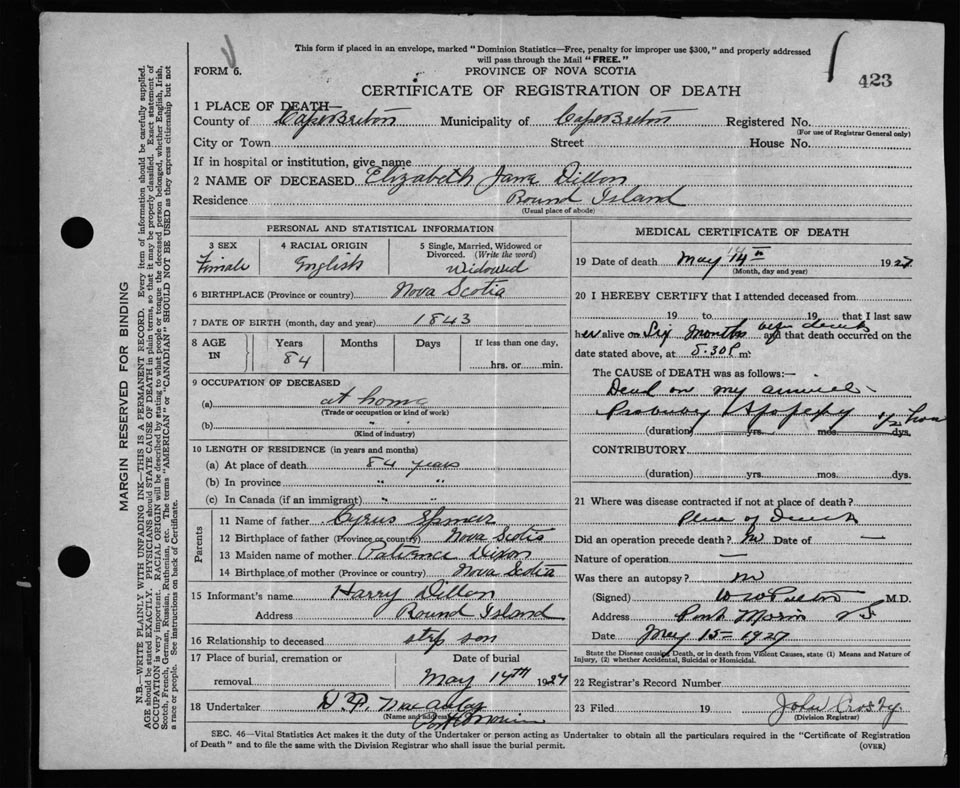 This form if placed in an envelope, marked "Dominion Statistics—Free, penalty for improper use $300," and properly addressed
will pass through the Mail "FREE."
FORM 6.
PROVINCE OF NOVA SCOTIA
423
CERTIFICATE OF REGISTRATION OF DEATH
1 PLACE OF DEATH—
County of Cape Breton Municipality of Cape Breton Registered No.
(For use of Registrar General only)
City or Town Street House No.
If in hospital or institution, give name
2 NAME OF DECEASED Elizabeth Jane Dillon
Residence Round Island
(Usual place of abode)
PERSONAL AND STATISTICAL INFORMATION
3 SEX 4 RACIAL ORIGIN 5 Single, Married, Widowed or
Divorced. (Write the word)
Female English Widowed
6 BIRTHPLACE (Province or country) Nova Scotia
7 DATE OF BIRTH (month, day and year) 1843
8 AGE IN Years Months Days If less than one day,
84 hrs. or min.
9 OCCUPATION OF DECEASED
(a) at home
(Trade or occupation or kind of work)
(b) " "
(Kind of industry)
10 LENGTH OF RESIDENCE (in years and months)
(a) At place of death 84 years
(b) In province " "
(c) In Canada (if an immigrant) " "
Parents
11 Name of father Cyrus Spencer
12 Birthplace of father (Province or country) Nova Scotia
13 Maiden name of mother Patience Dixon
14 Birthplace of mother (Province or country) Nova Scotia
15 Informant's name Harry Dillon
Address Round Island
16 Relationship to deceased step son
17 Place of burial, cremation or Date of burial
removal May 1927
18 Undertaker
(Name and address)
MEDICAL CERTIFICATE OF DEATH
19 Date of death May 14th 1927
(Month, day and year)
20 I HEREBY CERTIFY that I attended deceased from
19 to 19 that I last saw
her alive on Six months before death and that death occurred on the
date stated above, at 5.30P m.
The CAUSE of DEATH was as follows:—
Dead on my arrival
Probably Apoplexy 1/2 hour
(duration) yrs. mos. dys.
CONTRIBUTORY
(duration) yrs. mos. dys.
21 Where was disease contracted if not at place of death?
Place of Death
Did an operation precede death? No Date of —
Nature of operation —
Was there an autopsy? no
(Signed) M.D.
Address Port Morien N.S.
Date May 15 – 1927
State the Disease causing Death, or in death from Violent Causes, state (1) Means and Nature of
Injury, (2) whether Accidental, Suicidal or Homicidal.
22 Registrar's Record Number
23 Filed 19 John Crosby
(Division Registrar)
SEC. 46—Vital Statistics Act makes it the duty of the Undertaker or person acting as Undertaker to obtain all the particulars required in the "Certificate of Registration
of Death" and to file the same with the Division Registrar who shall issue the burial permit.
(OVER)
MARGIN RESERVED FOR BINDING
N.B.—WRITE PLAINLY WITH UNFADING INK—THIS IS A PERMANENT RECORD. Every item of information should be carefully supplied.
AGE should be stated EXACTLY. PHYSICIANS should STATE CAUSE OF DEATH in plain terms, so that it may be properly classified. Exact statement of
OCCUPATION is very important. RACIAL ORIGIN will be described by stating to what people or tongue the deceased person belonged, whether English, Irish,
Scotch, French, German, Russian, Ruthenian, etc. The terms "AMERICAN" or "CANADIAN" SHOULD NOT BE USED as they express citizenship but not
a race or people. See instructions on back of Certificate.